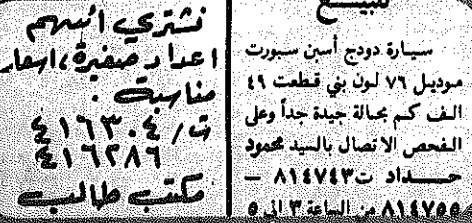 للبيع
سيارة دودج أسبن سبورت
موديل ٧٦ لون بني قطعت ٤٩
الف كم بحالة جيدة جداً وعلى
الفحص الاتصال بالسيد محمود
حداد ت ٨١٤٧٤٣ –
٨١٤٧٥٥ من الساعة ٣ الى ٥
نشتري اسهم
اعداد صغيرة، اسعار
مناسبة .
ت/ ٤١٦٣٠٤
٤١٦٢٨٦
مكتب طالب